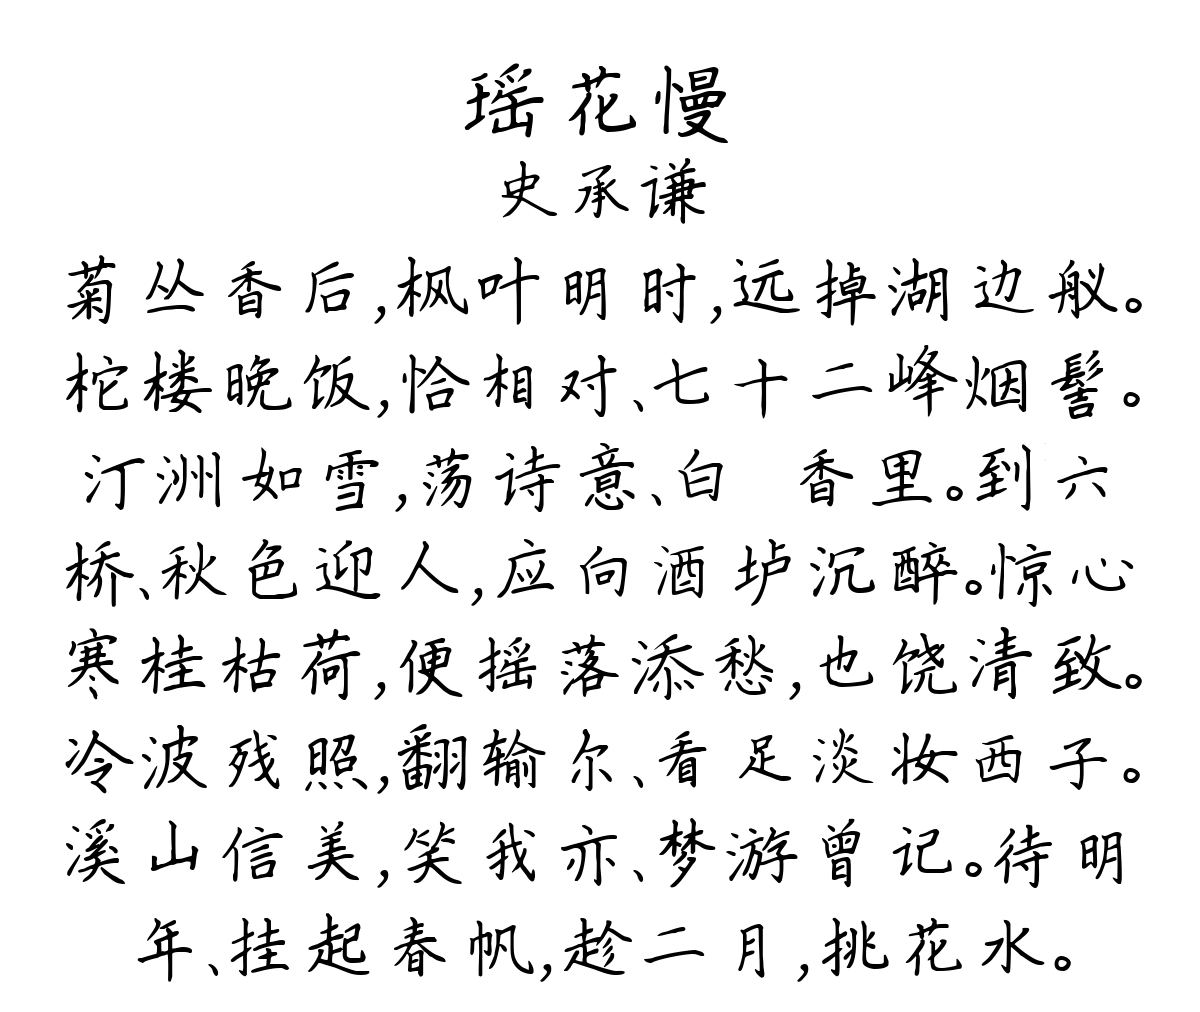 瑶花慢
史承谦
菊丛香后,枫叶明时,远掉湖边舣。
柁楼晚饭,恰相对、七十二峰烟髻。
汀洲如雪,荡诗意、白 香里。到六
桥、秋色迎人,应向酒垆沉醉。惊心
寒桂枯荷,便摇落添愁,也饶清致。
冷波残照,翻输尔、看足淡妆西子。
溪山信美,笑我亦、梦游曾记。待明
年、挂起春帆,趁二月,挑花水。